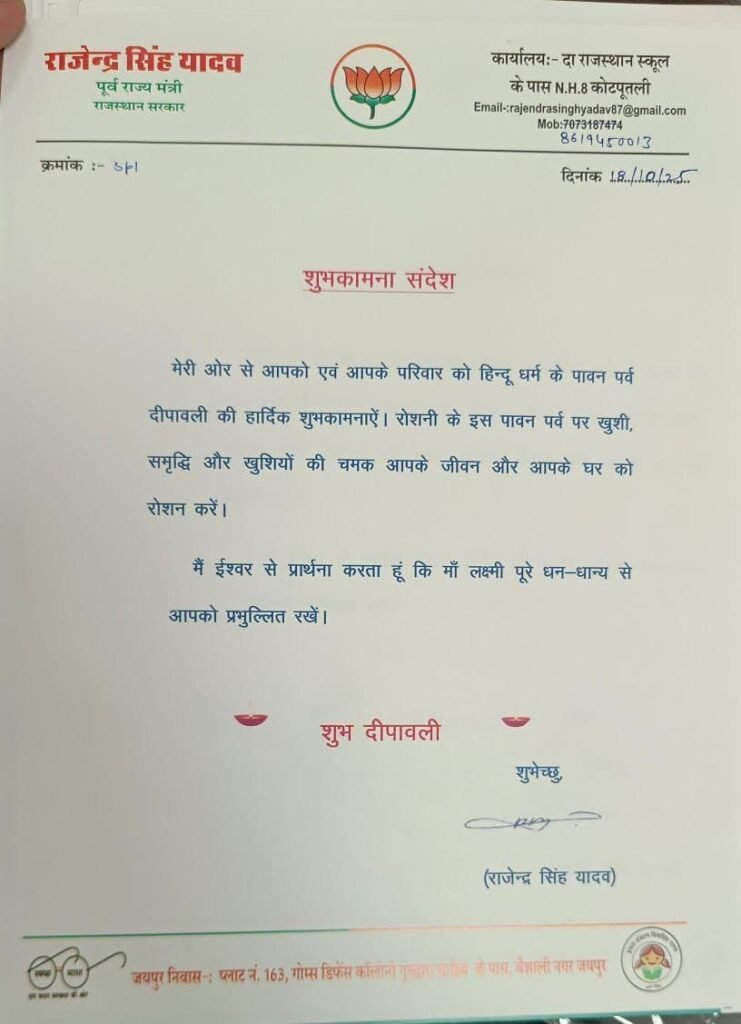 राजेन्द्र सिंह यादव
पूर्व राज्य मंत्री
राजस्थान सरकार
कार्यालय:- दा राजस्थान स्कूल
के पास N.H.8 कोटपूतली
Email-:rajendrasinghyadav87@gmail.com
Mob:7073187474
8619450013
क्रमांक :- Spl
दिनांक 18/10/25
शुभकामना संदेश
मेरी ओर से आपको एवं आपके परिवार को हिन्दू धर्म के पावन पर्व
दीपावली की हार्दिक शुभकामनाऐं। रोशनी के इस पावन पर्व पर खुशी,
समृद्धि और खुशियों की चमक आपके जीवन और आपके घर को
रोशन करें।
मैं ईश्वर से प्रार्थना करता हूं कि माँ लक्ष्मी पूरे धन–धान्य से
आपको प्रभुल्लित रखें।
शुभ दीपावली
शुभेच्छु,
(राजेन्द्र सिंह यादव)
स्वच्छ भारत
जयपुर निवास-; प्लाट नं. 163, गोम्स डिफेंस कॉलोनी गुरुद्वारा के पास, वैशाली नगर जयपुर